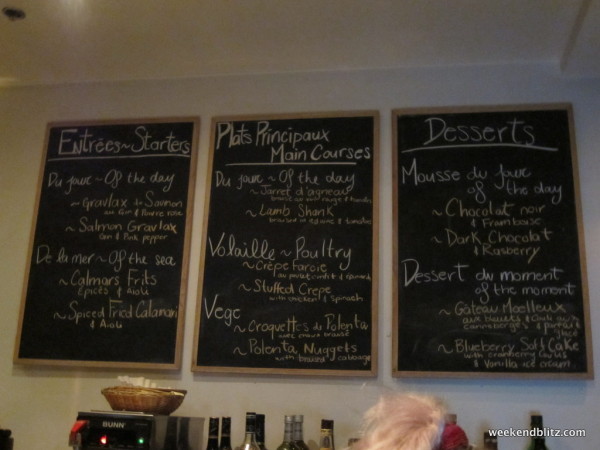 Entrées ~ Starters
Du jour ~ Of the day
~ Gravlax de Saumon
au Gin & Poivre rose
~ Salmon Gravlax
Gin & Pink pepper
De la mer ~ Of the sea
~ Calmars Frits
Épicés & Aioli
~ Spiced Fried Calamari
& Aioli
Plats Principaux
Main Courses
Du jour ~ Of the day
~ Jarret d'agneau
~ Lamb Shank
Volaille ~ Poultry
~ Crêpe farcie
au poulet confit & épinards
~ Stuffed Crepe
with chicken & spinach
Vege
~ Croquettes de Polenta
~ Polenta Nuggets
with braised cabbage
Desserts
Mousse du jour
of the day
~ Chocolat noir
& Framboise
~ Dark Chocolat
& Rasberry
Dessert du moment
of the moment
~ Gâteau Moelleux
aux bleuets & coulis aux
canneberges &
~ Blueberry Soft Cake
with cranberry coulis
& Vanilla ice cream
BUNN
weekendblitz.com